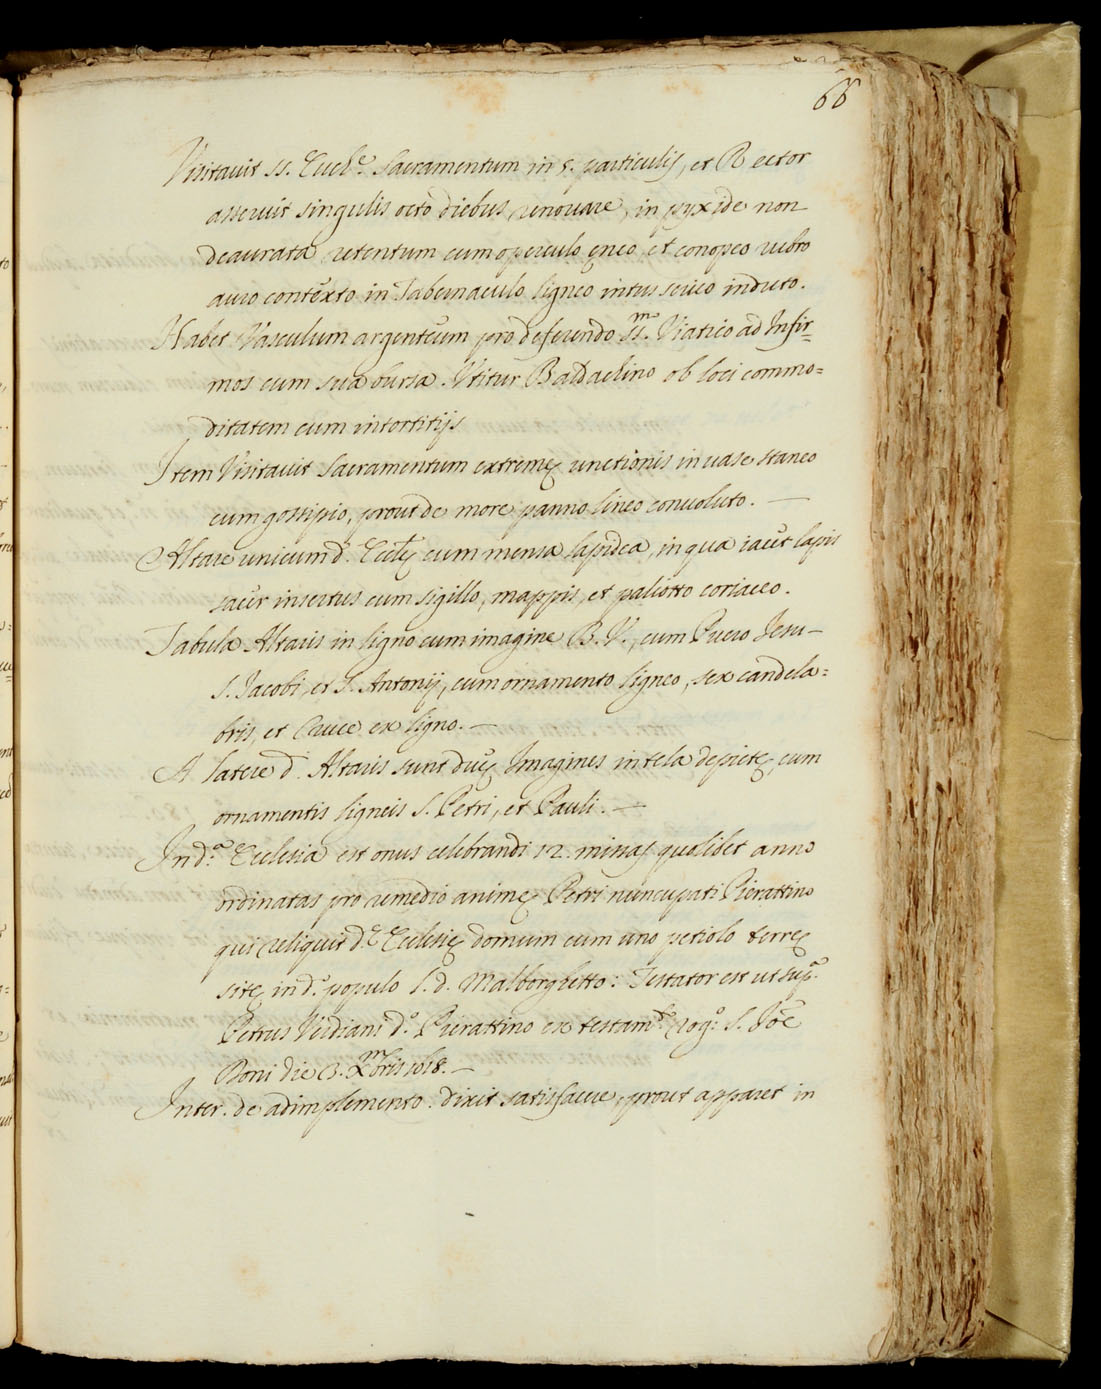 66
Visitavit SS. Euch.e Sacramentum in 5. particulis, et Rector
asseruit singulis octo diebus renouare, in pyxide non
deaurata retentum cum operculo ęneo, et conopeo rubro
auro contexto in Tabernaculo ligneo intus serico induto.
Habet Vasculum argenteum pro deferendo SS.mo Viatico ad Infir=
mos cum sua bursa. Vtitur Baldachino ob loci commo=
ditatem cum intortitijs
Item Visitauit Sacramentum extremę unctionis in uase staneo
cum gossipio, prout de more panno lineo conuoluto. —
Altare unicum d. Eccłę cum mensa lapidea, in qua iacet lapis
sacer insertus cum sigillo, mappis, et paliotto coriaceo.
Tabula Altaris in ligno cum imagine B. V., cum Puero Jesu —
S. Jacobi, et S. Antonij, cum ornamento ligneo, sex candela=
bris, et Cruce ex ligno. —
A latere d. Altaris sunt duę Imagines in tela depictę, cum
ornamentis ligneis S. Petri, et Pauli. —
In d.a Ecclesia est onus celebrandi 12. missas quolibet anno
ordinatas pro remedio animę Petri nuncupati Pierattino
qui reliquit d.e Ecclesię domum cum uno petiolo terrę
sitę in d.o populo S. d. Malborghetto: Testator est ut sup.a
Petrus Viviani d.o Pierattino ex testam.to rog.o S. Joē
Boni die 3. Xmbris 1618. —
Inter. de adimplemento. dixit satisfacere, prout apparet in